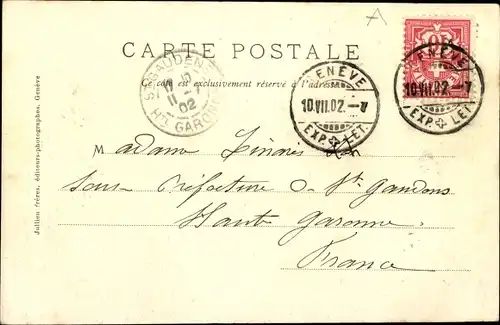 CARTE POSTALE
Ce côté est exclusivement réservé à l'adresse
ST GAUDENS
11
02
HTE GARONNE
GENÈVE
10.VII.02.–7
EXP. LET.
GENÈVE
10.VII.02.–7
EXP. LET.
Madame
Sous-Préfecture St Gaudens
Haute Garonne
France
Jullien frères, éditeurs-photographes, Genève